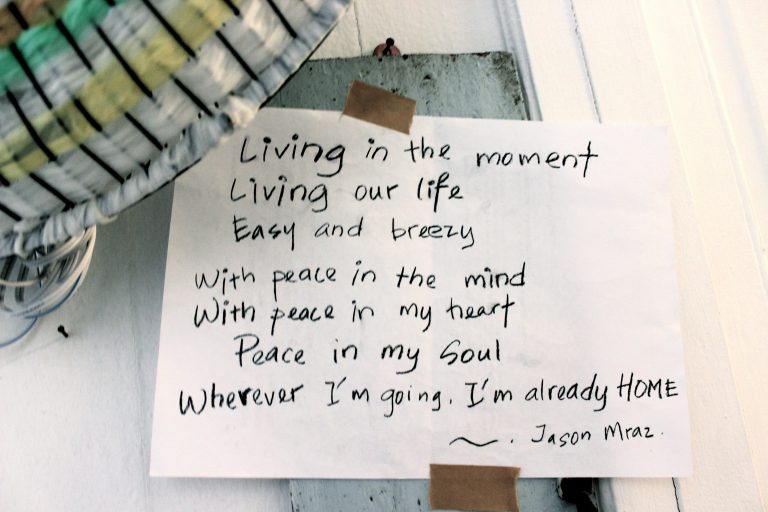 Living in the moment
Living our life
Easy and breezy
With peace in the mind
With peace in my heart
Peace in my soul
Wherever I'm going. I'm already HOME
~. Jason Mraz.